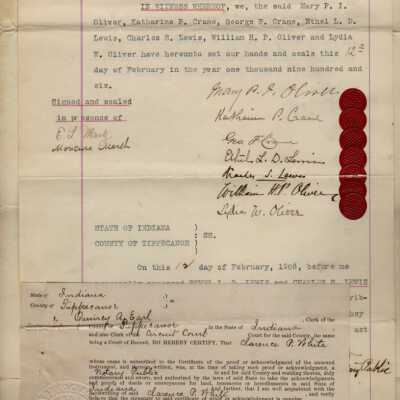 IN WITNESS WHEREOF, we, the said Mary P. I.
Oliver, Katharine P. Crane, George F. Crane, Ethel L. D.
Lewis, Charles S. Lewis, William H. P. Oliver and Lydia
W. Oliver have hereunto set our hands and seals this 12th
day of February in the year one thousand nine hundred and
six.
Mary P. I. Oliver
Signed and sealed
in presence of
Katharine P. Crane
Geo F Crane
Ethel L. D. Lewis
Charles S. Lewis
William H P. Oliver
Lydia W. Oliver
STATE OF INDIANA
COUNTY OF TIPPECANOE
: SS.
On this 12 day of February, 1906, before me
State of Indiana
County of Tippecanoe
I, Quincy A. Earl, Clerk of the
County of Tippecanoe in the State of Indiana
and also Clerk of Circuit Court for the said County, the same
being a Court of Record, DO HEREBY CERTIFY, That Clarence P. White
whose name is subscribed to the Certificate of the proof or acknowledgment of the annexed
instrument, and thereon written, was, at the time of taking such proof or acknowledgment, a
Notary Public in and for said County and residing therein, duly
commissioned and sworn, and authorized by the laws of said State to take the acknowledgments
and proofs of deeds or conveyances for land, tenements or hereditaments in said State of
Indiana. And further, that I am well acquainted with the
handwriting of said Clarence P. White, and verily